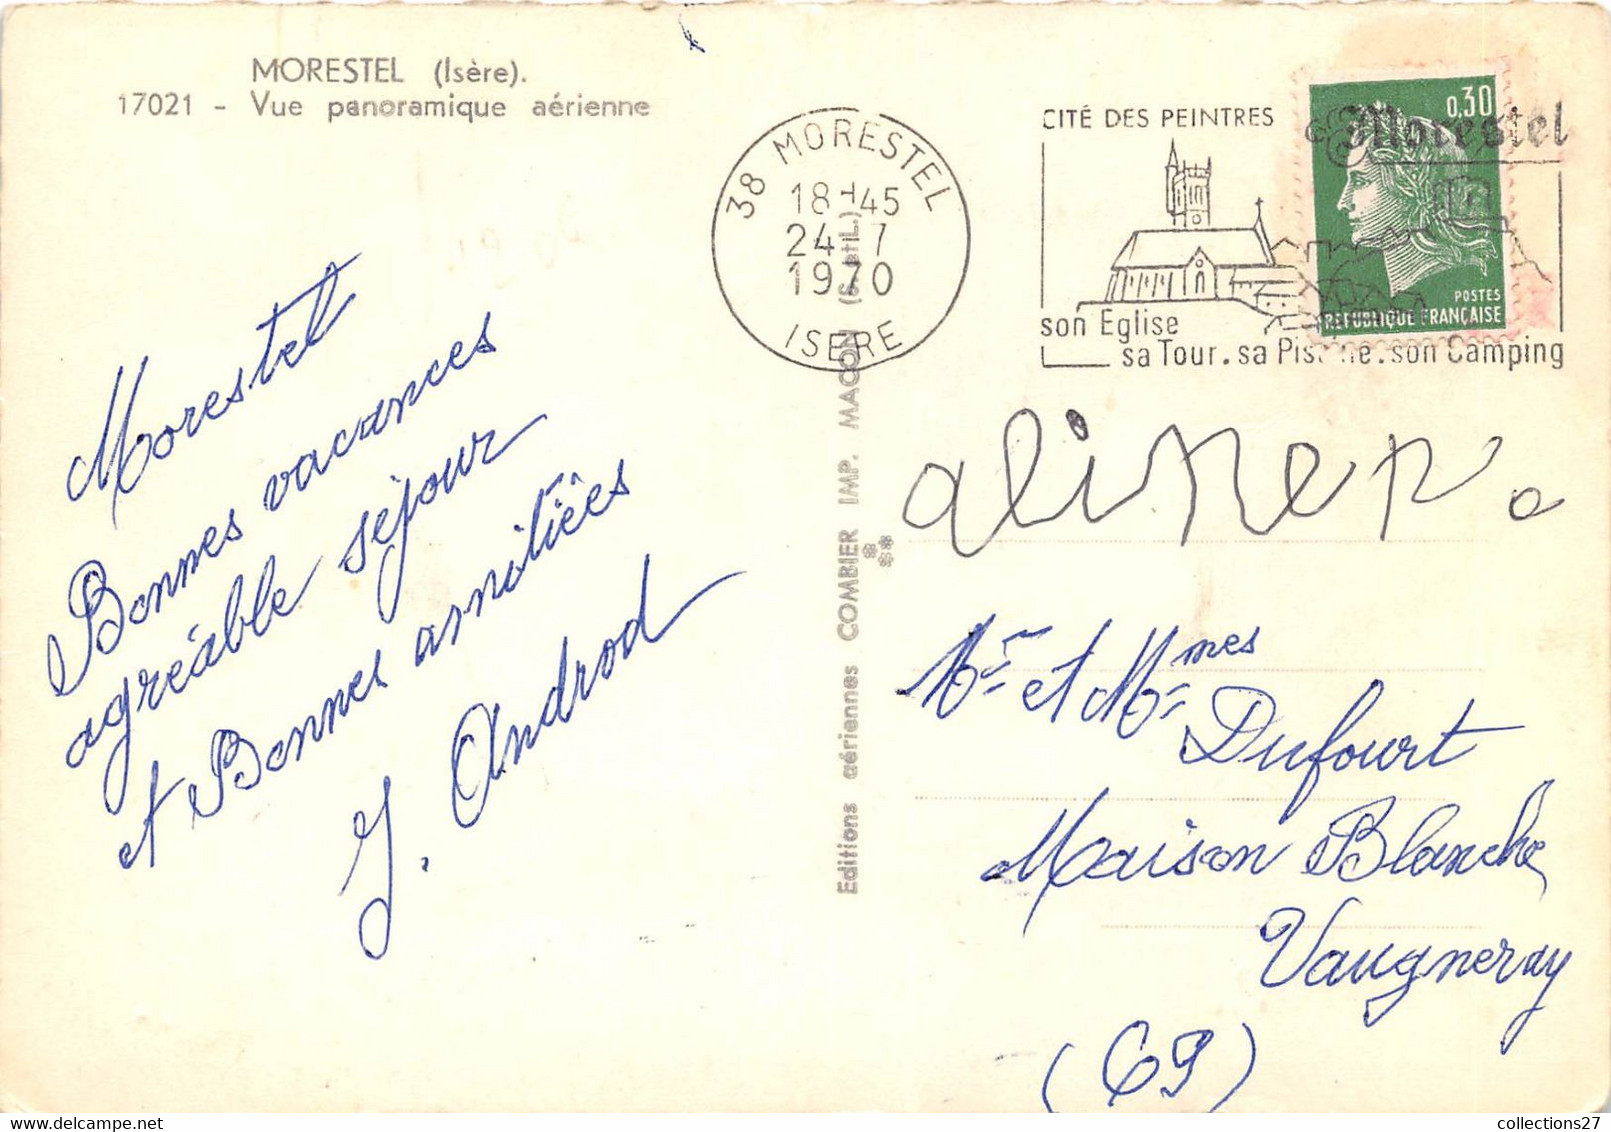 MORESTEL (Isère).
17021 - Vue panoramique aérienne
38 MORESTEL
18H45
24 - 7
1970
ISERE
CITÉ DES PEINTRES
Morestel
son Eglise
sa Tour. sa Pis ne. son Camping
0,30
POSTES
RÉPUBLIQUE FRANÇAISE
Morestel
Bonnes vacances
agréable séjour
et Bonnes amitiées
J. Androd
Editions aériennes COMBIER IMP. MACON
Mr et Mmes
Dufourt
Maison Blanche
Vaugneray
(69)
collections27